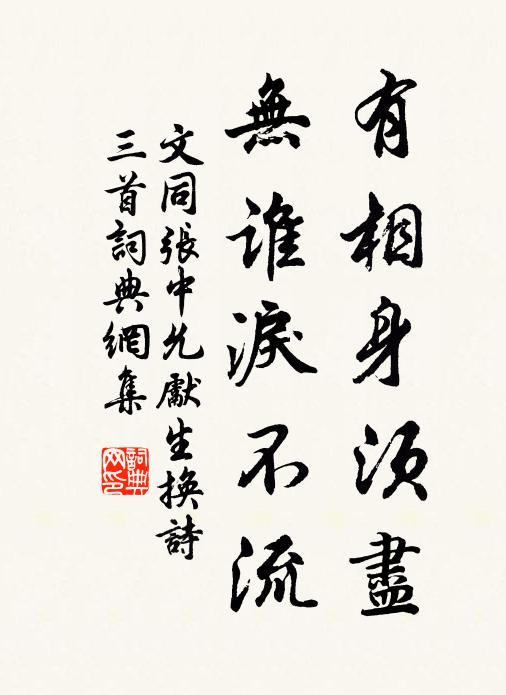 有相身須盡
無誰淚不流
文同張中允獻生挽詩
三首詞典網集
詞典網印